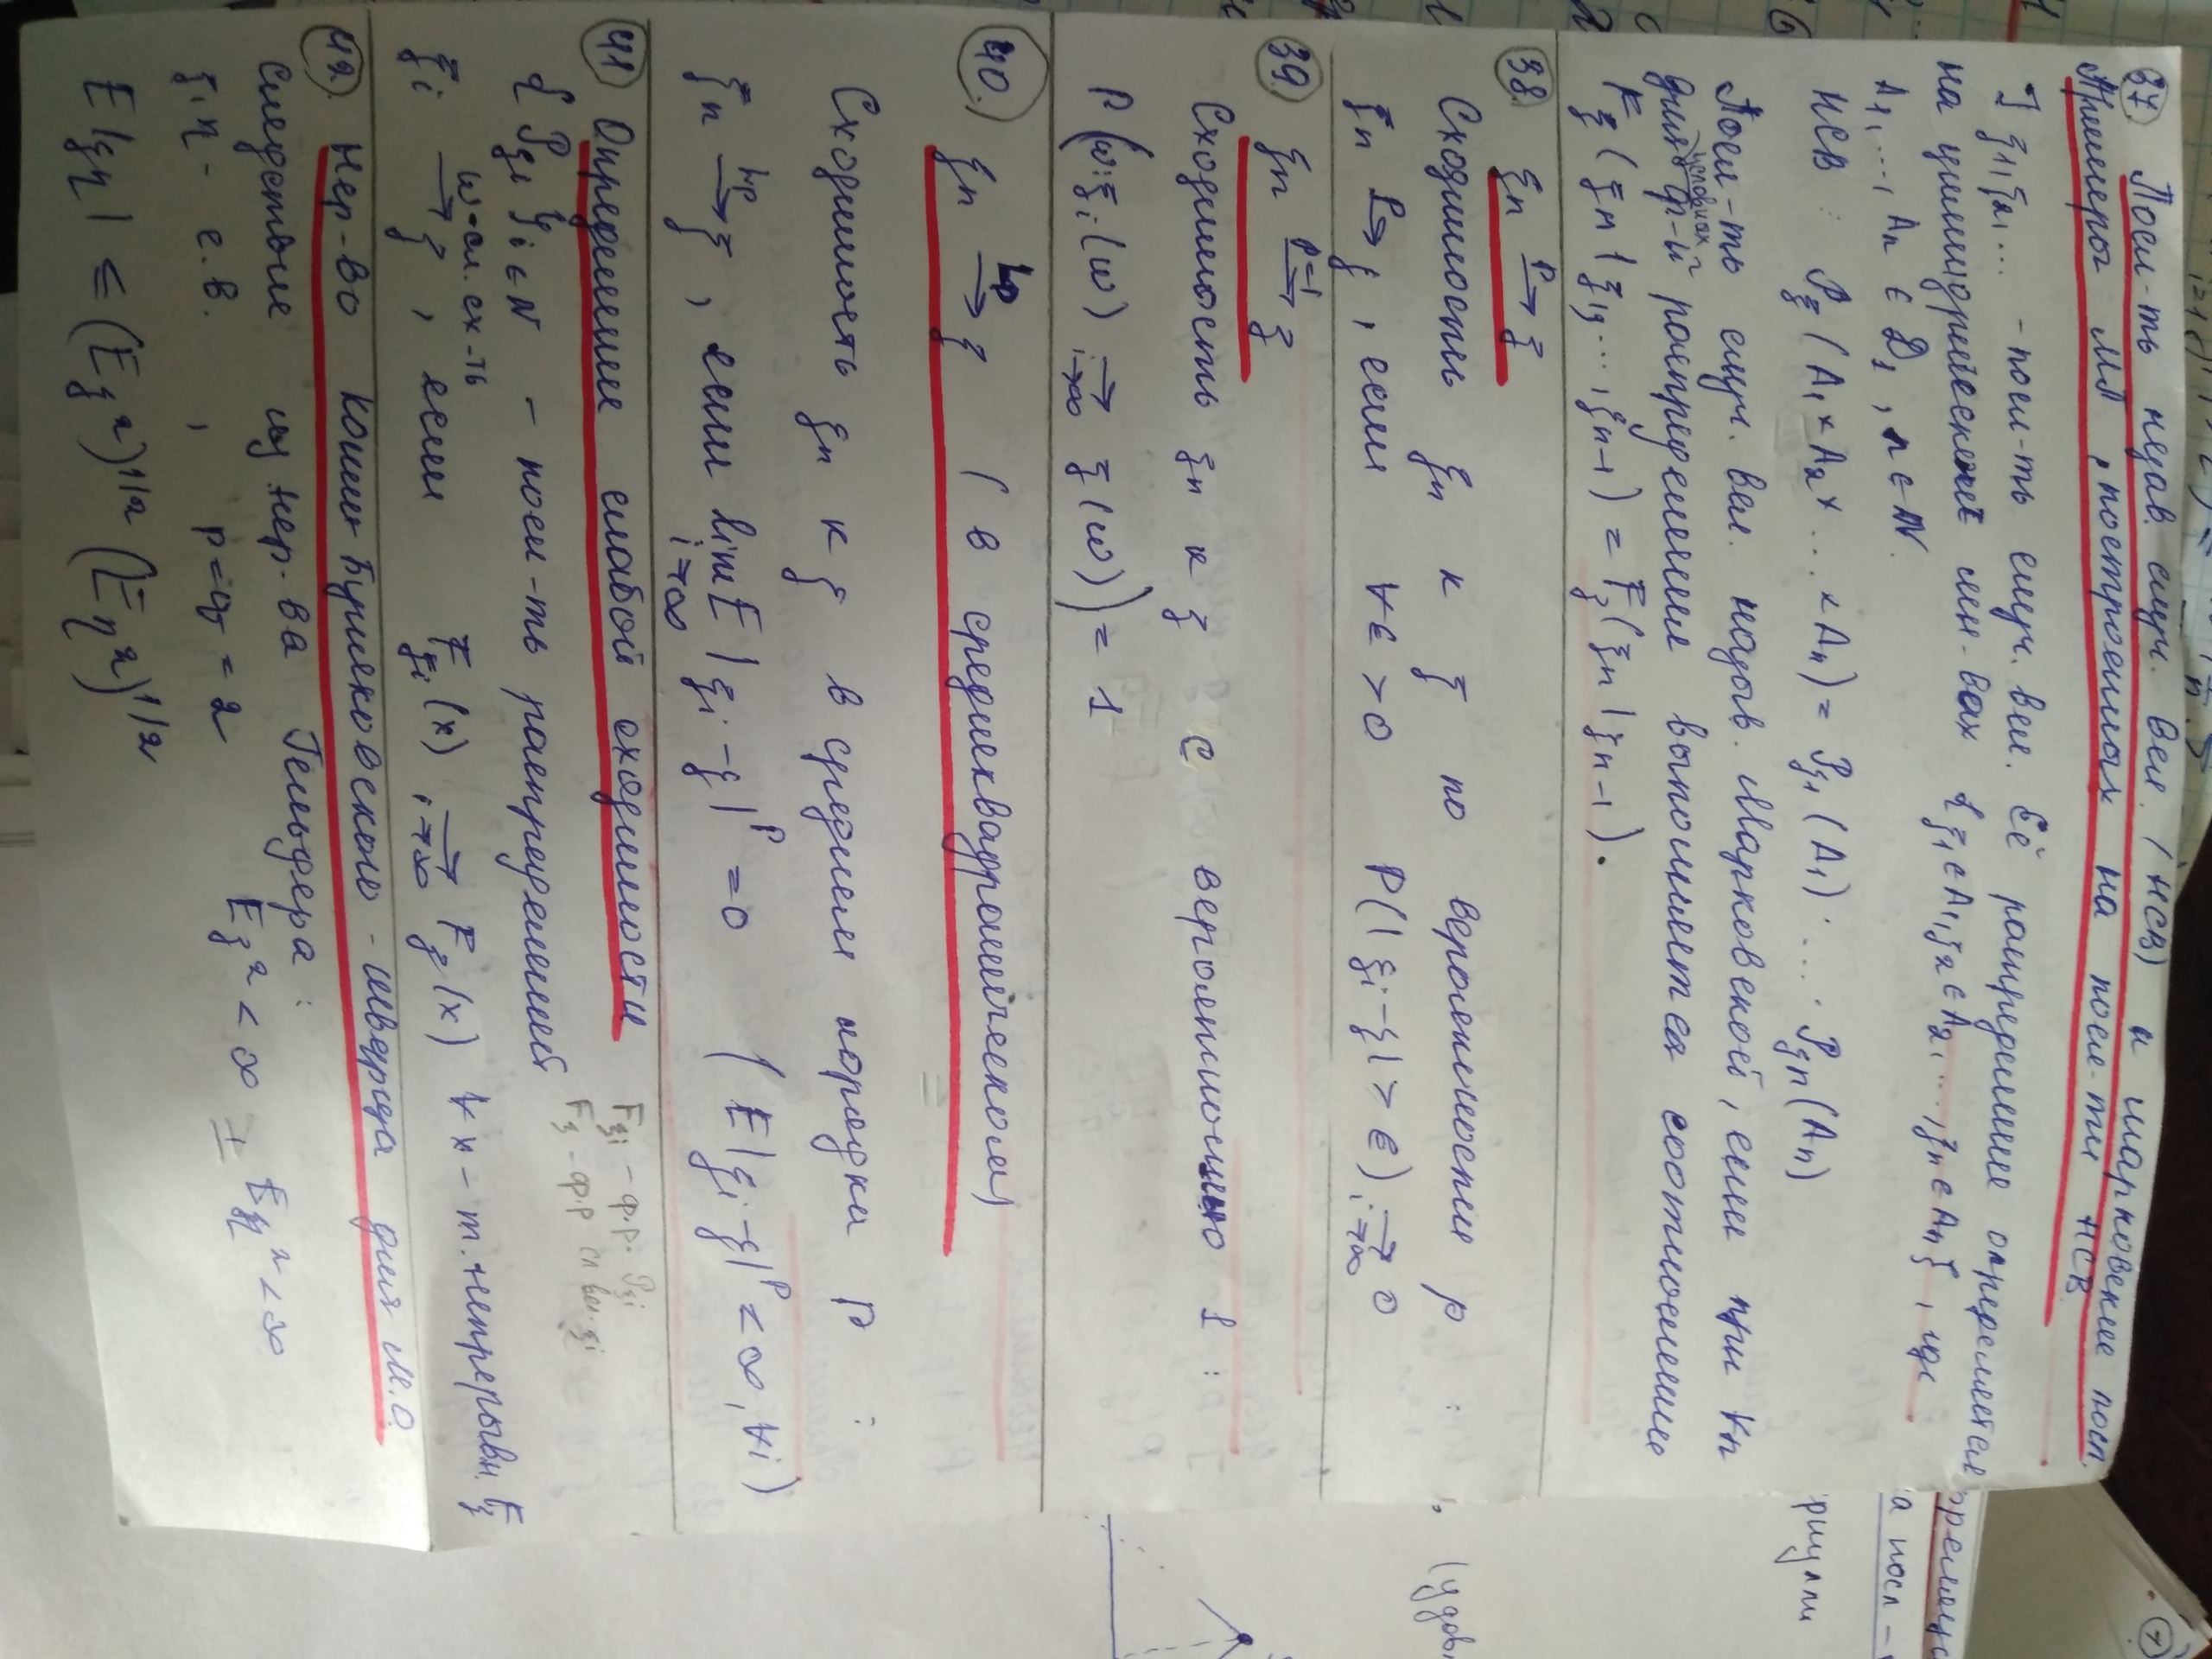 37. Посл-ть незав. случ. вел. (НСВ) и марковские посл.
Примеры МП, построенных на посл-ти НСВ.
] ξ₁, ξ₂, ... - посл-ть случ. вел. Её распределение определяется
на цилиндрических мн-вах {ξ₁ ∈ A₁, ξ₂ ∈ A₂, ..., ξₙ ∈ Aₙ}, где
A₁, ..., Aₙ ∈ D₁, n ∈ N.
НСВ : P_ξ (A₁ × A₂ × ... × Aₙ) = P_ξ₁ (A₁) · ... · P_ξₙ (Aₙ)
Посл-ть случ. вел. назыв. Марковской, если при ∀n
для условных ф-й распределения выполняется соотношение
F_ξ (ξₙ | ξ₁, ..., ξₙ₋₁) = F_ξ (ξₙ | ξₙ₋₁).
38. ξₙ →^P ξ
Сходимость ξₙ к ξ по вероятности p :
ξₙ →^P ξ, если ∀ε > 0 P(|ξᵢ - ξ| > ε) →_{i→∞} 0
39. ξₙ →^{P=1} ξ
Сходимость ξₙ к ξ с вероятностью 1 :
P(ω: ξᵢ(ω) →_{i→∞} ξ(ω)) = 1
40. ξₙ →^{Lp} ξ (в среднеквадратическом)
Сходимость ξₙ к ξ в среднем порядка p :
ξₙ →^{Lp} ξ, если lim_{i→∞} E|ξᵢ - ξ|^p = 0 (E|ξᵢ - ξ|^p < ∞, ∀i)
41 Определение слабой сходимости
F_ξᵢ - ф.р. P_ξᵢ
F_ξ - ф.р сл вел. ξᵢ
{P_ξᵢ}_{i∈N} - посл-ть распределений
ξᵢ →^{ω-сл. сх-ть} ξ, если F_ξᵢ(x) →_{i→∞} F_ξ(x) ∀x - т. непрерывн. F_ξ
42. Нер-во Коши-Буняковского-Шварца для М.О.
Следствие из нер-ва Гельдера :
ξ, η - с.в. , p = q = 2 Eξ² < ∞ Eη² < ∞
E|ξη| ≤ (Eξ²)^{1/2} (Eη²)^{1/2}